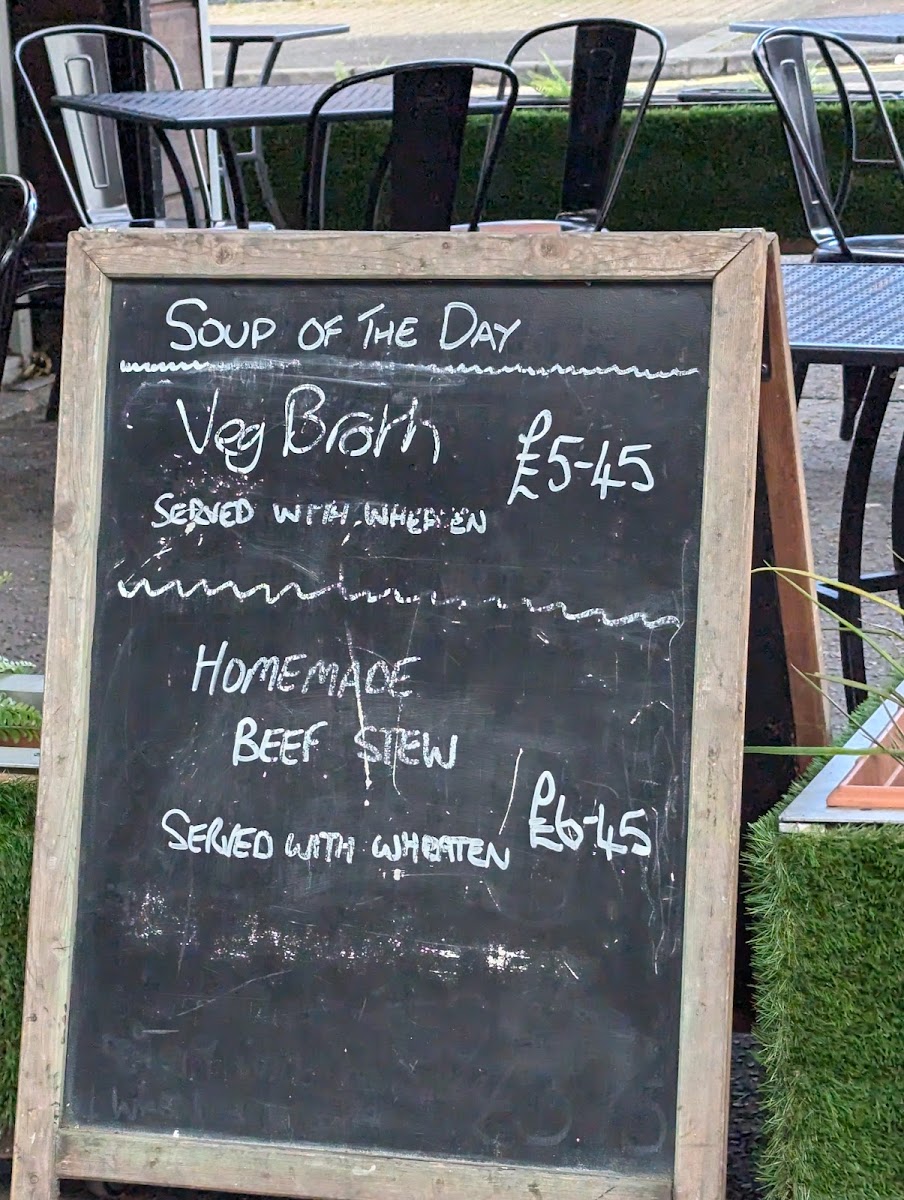 SOUP OF THE DAY
Veg Broth
£5-45
SERVED WITH WHEATEN
HOMEMADE
BEEF STEW
SERVED WITH WHEATEN £6-45